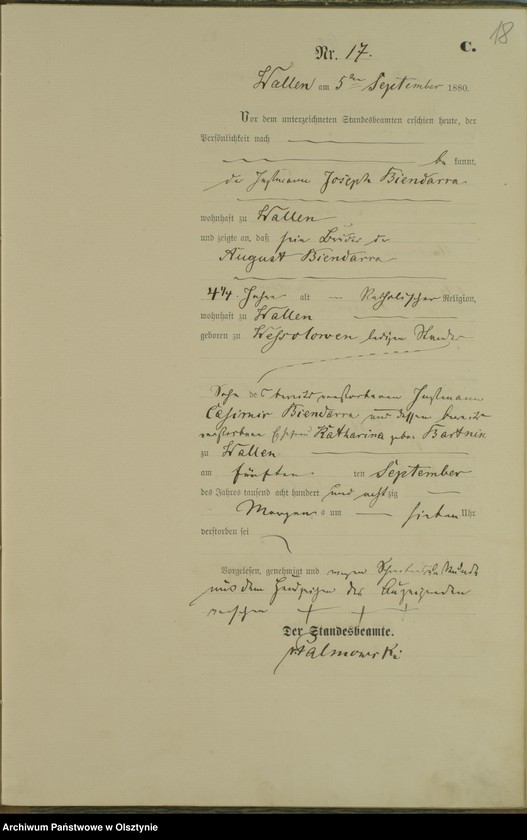 18
C.
Nr. 17.
Wallen am 5ten September 1880.
Vor dem unterzeichneten Standesbeamten erschien heute, der
Persönlichkeit nach
be kannt,
der Instmann Joseph Biendarra
wohnhaft zu Wallen
und zeigte an, daß sein Bruder der
August Biendarra
44 Jahre alt Katholischer Religion,
wohnhaft zu Wallen
geboren zu Wessolowen ledigen Standes
Sohn des bereits verstorbenen Instmann
Casimir Biendarra und dessen bereits
verstorbene Ehefrau Katharina geb. Bartnik
zu Wallen
am fünften ten September
des Jahres tausend acht hundert und achtzig
Morgens um sieben Uhr
verstorben sei
Vorgelesen, genehmigt und wegen Schreibensunkunde
mit dem Handzeichen des Anzeigenden
versehen + + +
Der Standesbeamte.
Archiwum Państwowe w Olsztynie